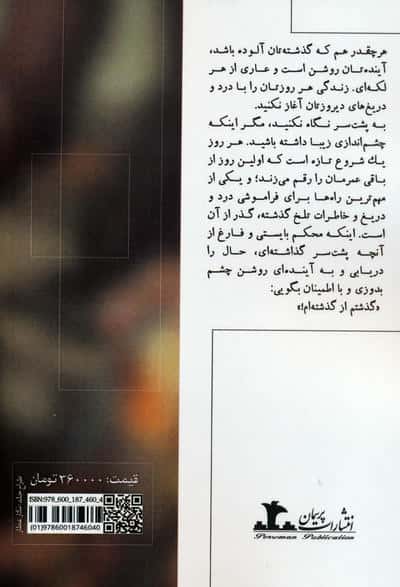 هرچقدر هم که گذشته‌تان آلوده باشد،
آینده‌تان روشن است و عاری از هر
لکه‌ای. زندگی هر روزتان را با درد و
دریغ‌های دیروزتان آغاز نکنید.
به پشت‌سر نگاه نکنید، مگر اینکه
چشم‌اندازی زیبا داشته باشید. هر روز
یك شروع تازه است که اولین روز از
باقی عمرمان را رقم می‌زند؛ و یکی از
مهم‌ترین راه‌ها برای فراموشی درد و
دریغ و خاطرات تلخ گذشته، گذر از آن
است. اینکه محکم بایستی و فارغ از
آنچه پشت‌سر گذاشته‌ای، حال را
دریابی و به آینده‌ای روشن چشم
بدوزی و با اطمینان بگویی:
«گذشتم از گذشته‌ام!»
قیمت: ۳۶۰۰۰۰ تومان
ISBN:978_600_187_460_4
(01)97860018746040
طراح جلد:
انتشارات پریمان
Publication